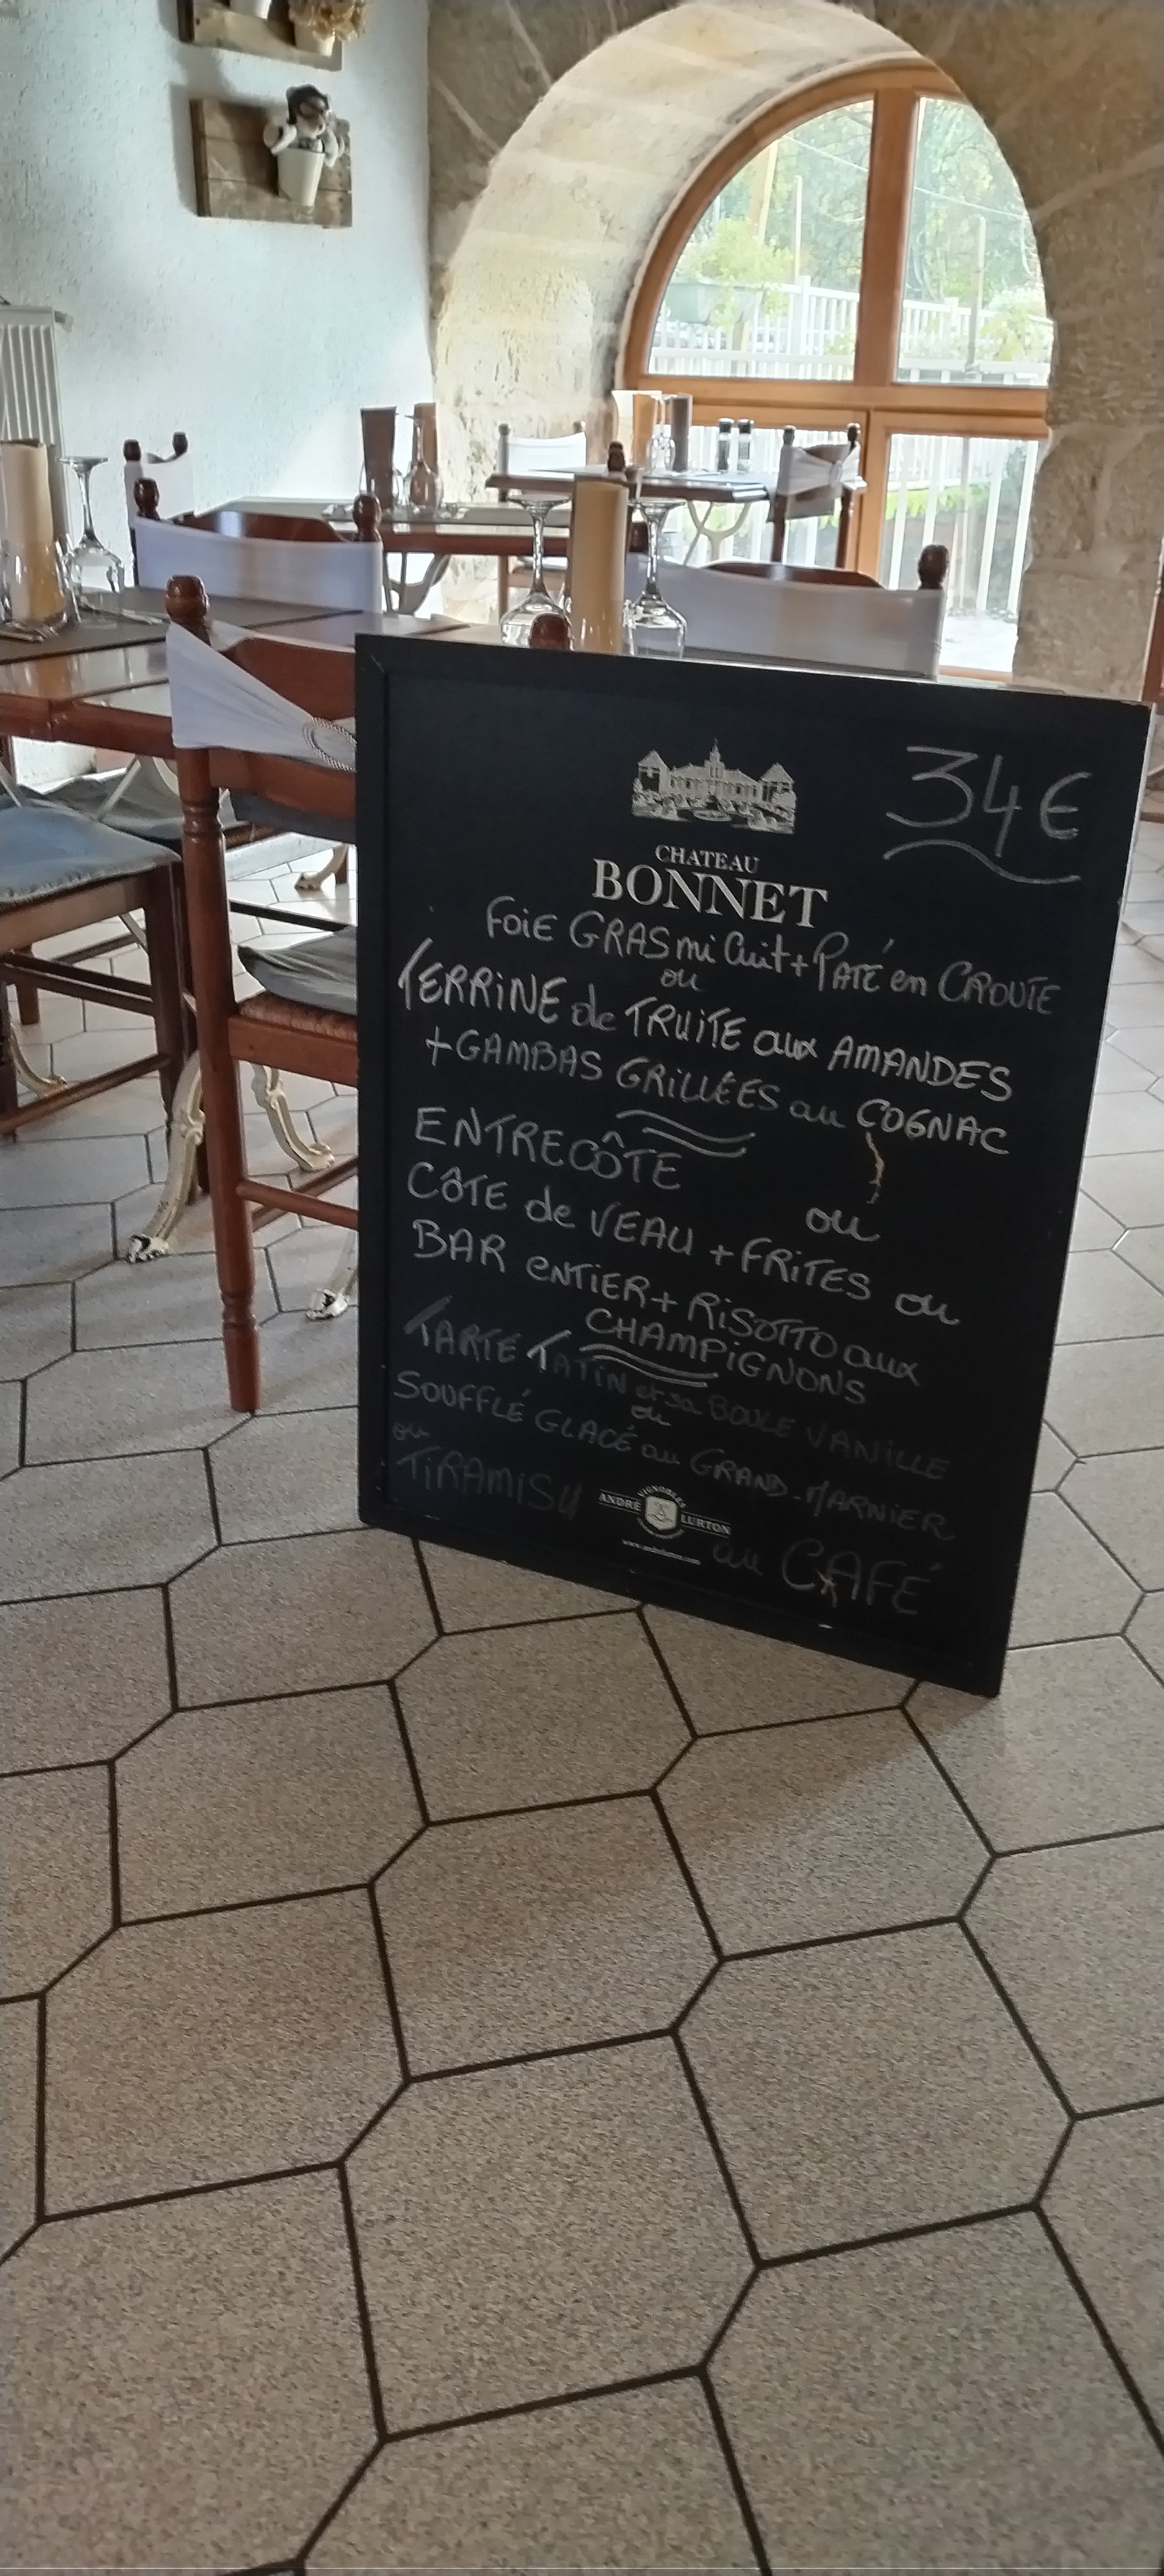 34€
CHATEAU
BONNET
FOIE GRAS mi Cuit + PATÉ en CROUTE
ou
TERRINE de TRUITE aux AMANDES
+ GAMBAS GRILLÉES au COGNAC
ENTRECÔTE
ou
CÔTE de VEAU + FRITES ou
BAR ENTIER + RISOTTO aux
CHAMPIGNONS
TARTE TATIN et sa BOULE VANILLE
ou
SOUFFLÉ GLACÉ au GRAND-MARNIER
ou
TIRAMISU au CAFÉ
VIGNOBLES
ANDRÉ LURTON
www.andrelurton.com